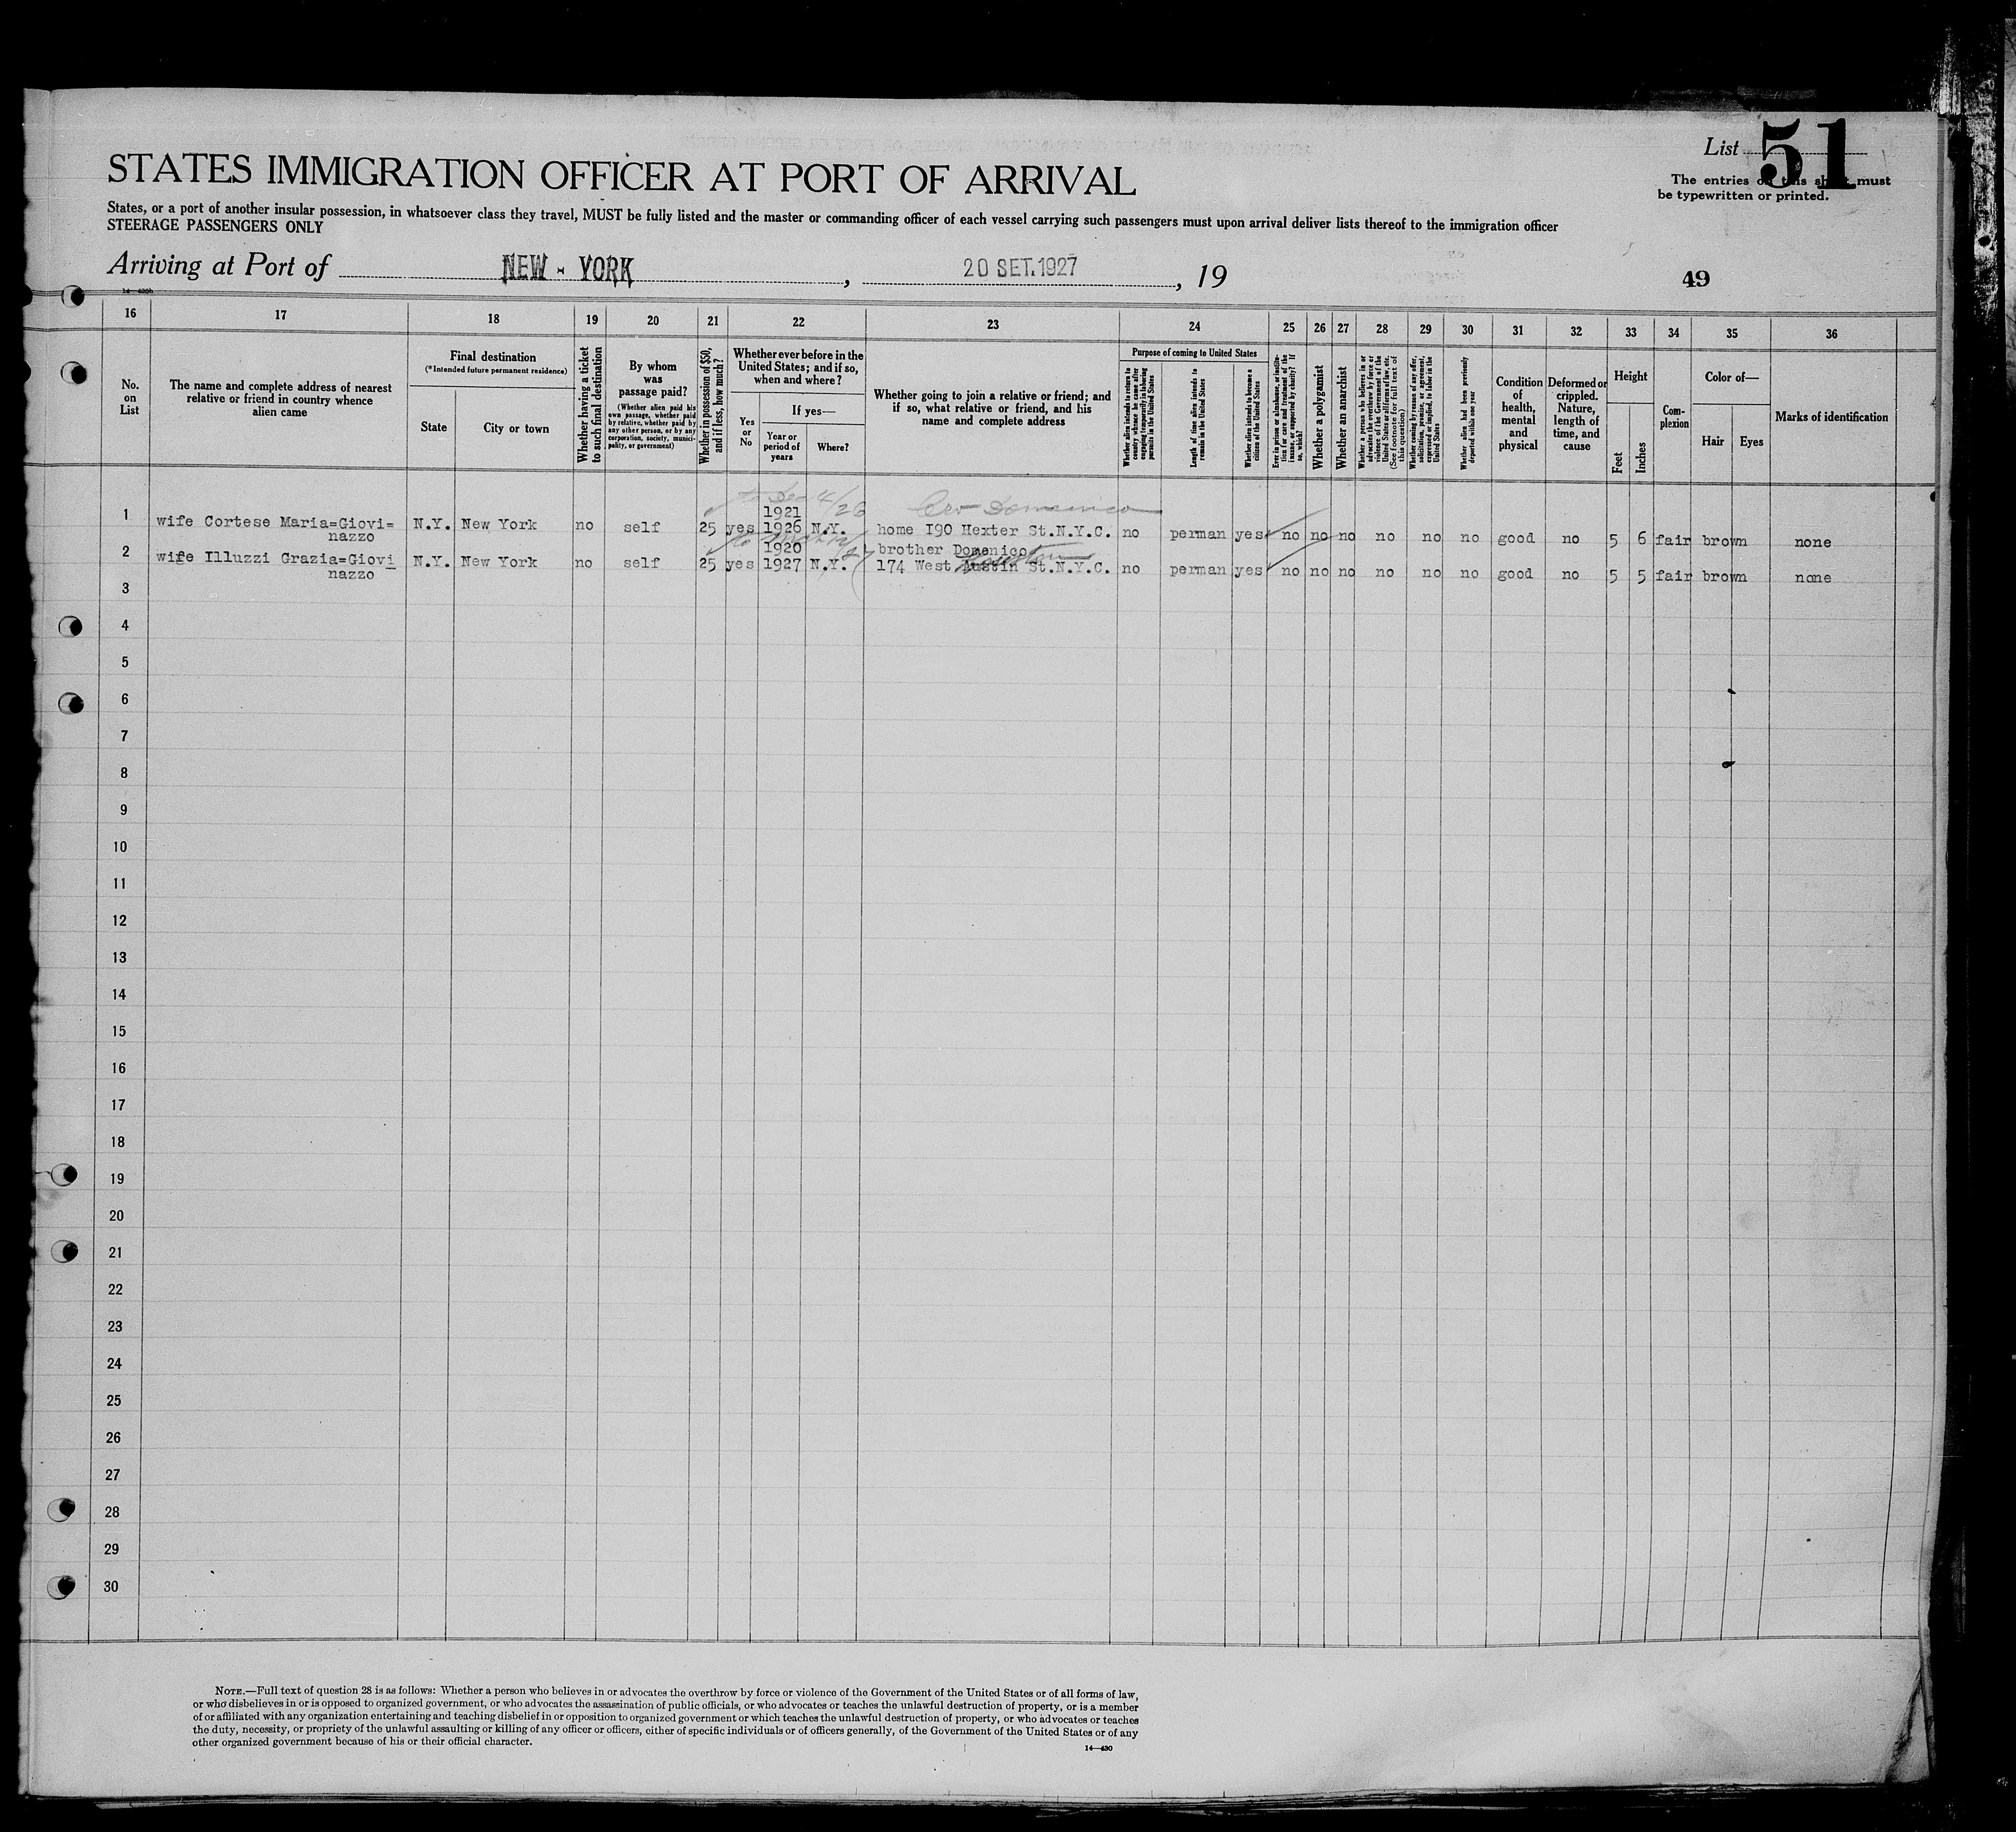 List 51
STATES IMMIGRATION OFFICER AT PORT OF ARRIVAL
The entries on this sheet must
be typewritten or printed.
States, or a port of another insular possession, in whatsoever class they travel, MUST be fully listed and the master or commanding officer of each vessel carrying such passengers must upon arrival deliver lists thereof to the immigration officer
STEERAGE PASSENGERS ONLY
Arriving at Port of NEW - YORK, 20 SET. 1927, 19
49
16 17 18 19 20 21 22 23 24 25 26 27 28 29 30 31 32 33 34 35 36
No. on List
The name and complete address of nearest
relative or friend in country whence
alien came
Final destination
(*Intended future permanent residence)
State
City or town
Whether having a ticket
to such final destination
By whom
was
passage paid?
(Whether alien paid his
own passage, whether paid
by relative, whether paid by
any other person, or by any
corporation, society, munici-
pality, or government)
Whether in possession of $50,
and if less, how much?
Whether ever before in the
United States; and if so,
when and where?
Yes
or
No
If yes—
Year or
period of
years
Where?
Whether going to join a relative or friend; and
if so, what relative or friend, and his
name and complete address
Purpose of coming to United States
Whether alien intends to return to
country whence he came after
engaging temporarily in laboring
pursuits in the United States
Length of time alien intends to
remain in the United States
Whether alien intends to become a
citizen of the United States
Ever in prison or almshouse, or institu-
tion for care and treatment of the
insane, or supported by charity? If
so, which?
Whether a polygamist
Whether an anarchist
Whether a person who believes in or
advocates the overthrow by force or
violence of the Government of the
United States or all forms of law, etc.
(See footnote for full text of
this question)
Whether coming by reason of any offer,
solicitation, promise, or agreement,
expressed or implied, to labor in the
United States
Whether alien had been previously
deported within one year
Condition
of
health,
mental
and
physical
Deformed or
crippled.
Nature,
length of
time, and
cause
Height
Feet
Inches
Com-
plexion
Color of—
Hair
Eyes
Marks of identification
4/26
Domenico
1921
1 wife Cortese Maria=Giovi= N.Y. New York no self 25 yes 1926 N.Y. home I90 Hexter St.N.Y.C. no perman yes no no no no no no good no 5 6 fair brown none
nazzo
1920 brother Domenico
2 wife Illuzzi Grazia=Giovi N.Y. New York no self 25 yes 1927 N.Y. 174 West Austin St.N.Y.C. no perman yes no no no no no no good no 5 5 fair brown none
Houston
nazzo
3
4
5
6
7
8
9
10
11
12
13
14
15
16
17
18
19
20
21
22
23
24
25
26
27
28
29
30
NOTE.—Full text of question 28 is as follows: Whether a person who believes in or advocates the overthrow by force or violence of the Government of the United States or of all forms of law,
or who disbelieves in or is opposed to organized government, or who advocates the assassination of public officials, or who advocates or teaches the unlawful destruction of property, or is a member
of or affiliated with any organization entertaining and teaching disbelief in or opposition to organized government or which teaches the unlawful destruction of property, or who advocates or teaches
the duty, necessity, or propriety of the unlawful assaulting or killing of any officer or officers, either of specific individuals or of officers generally, of the Government of the United States or of any
other organized government because of his or their official character.
14—430